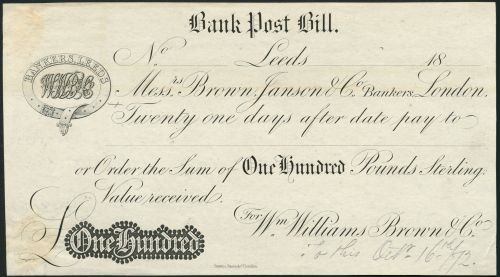 Bank Post Bill.
No Leeds 18
BANKERS, LEEDS
Messrs Brown, Janson & Co. Bankers, London.
Twenty one days after date pay to
or Order the Sum of One Hundred Pounds Sterling.
Value received.
For Wm. Williams Brown & Co.
£ One Hundred
Octr. 16